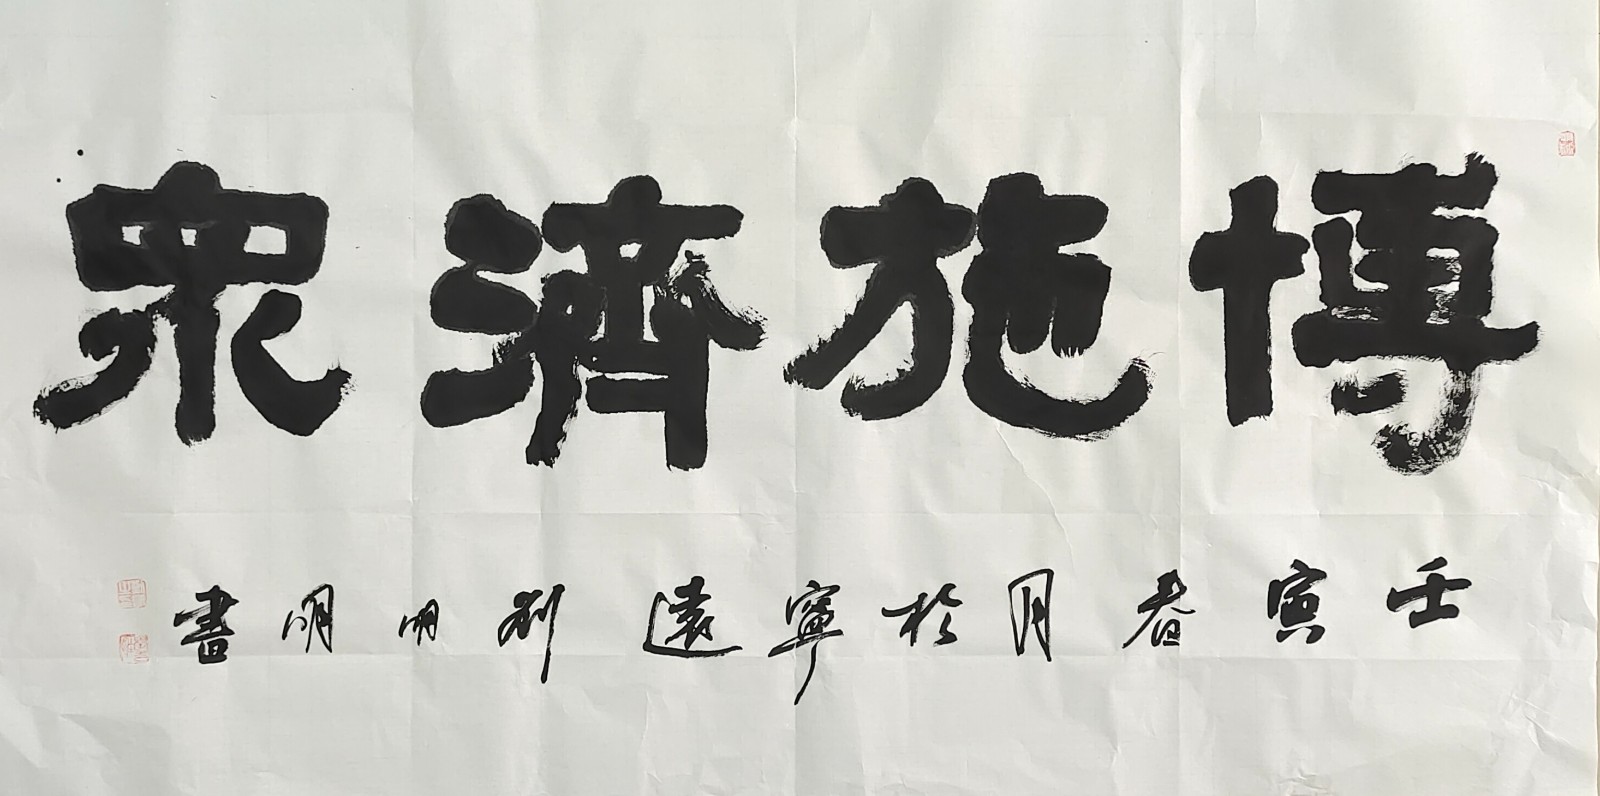 博施濟眾
壬寅春月於寧遠劉明明書